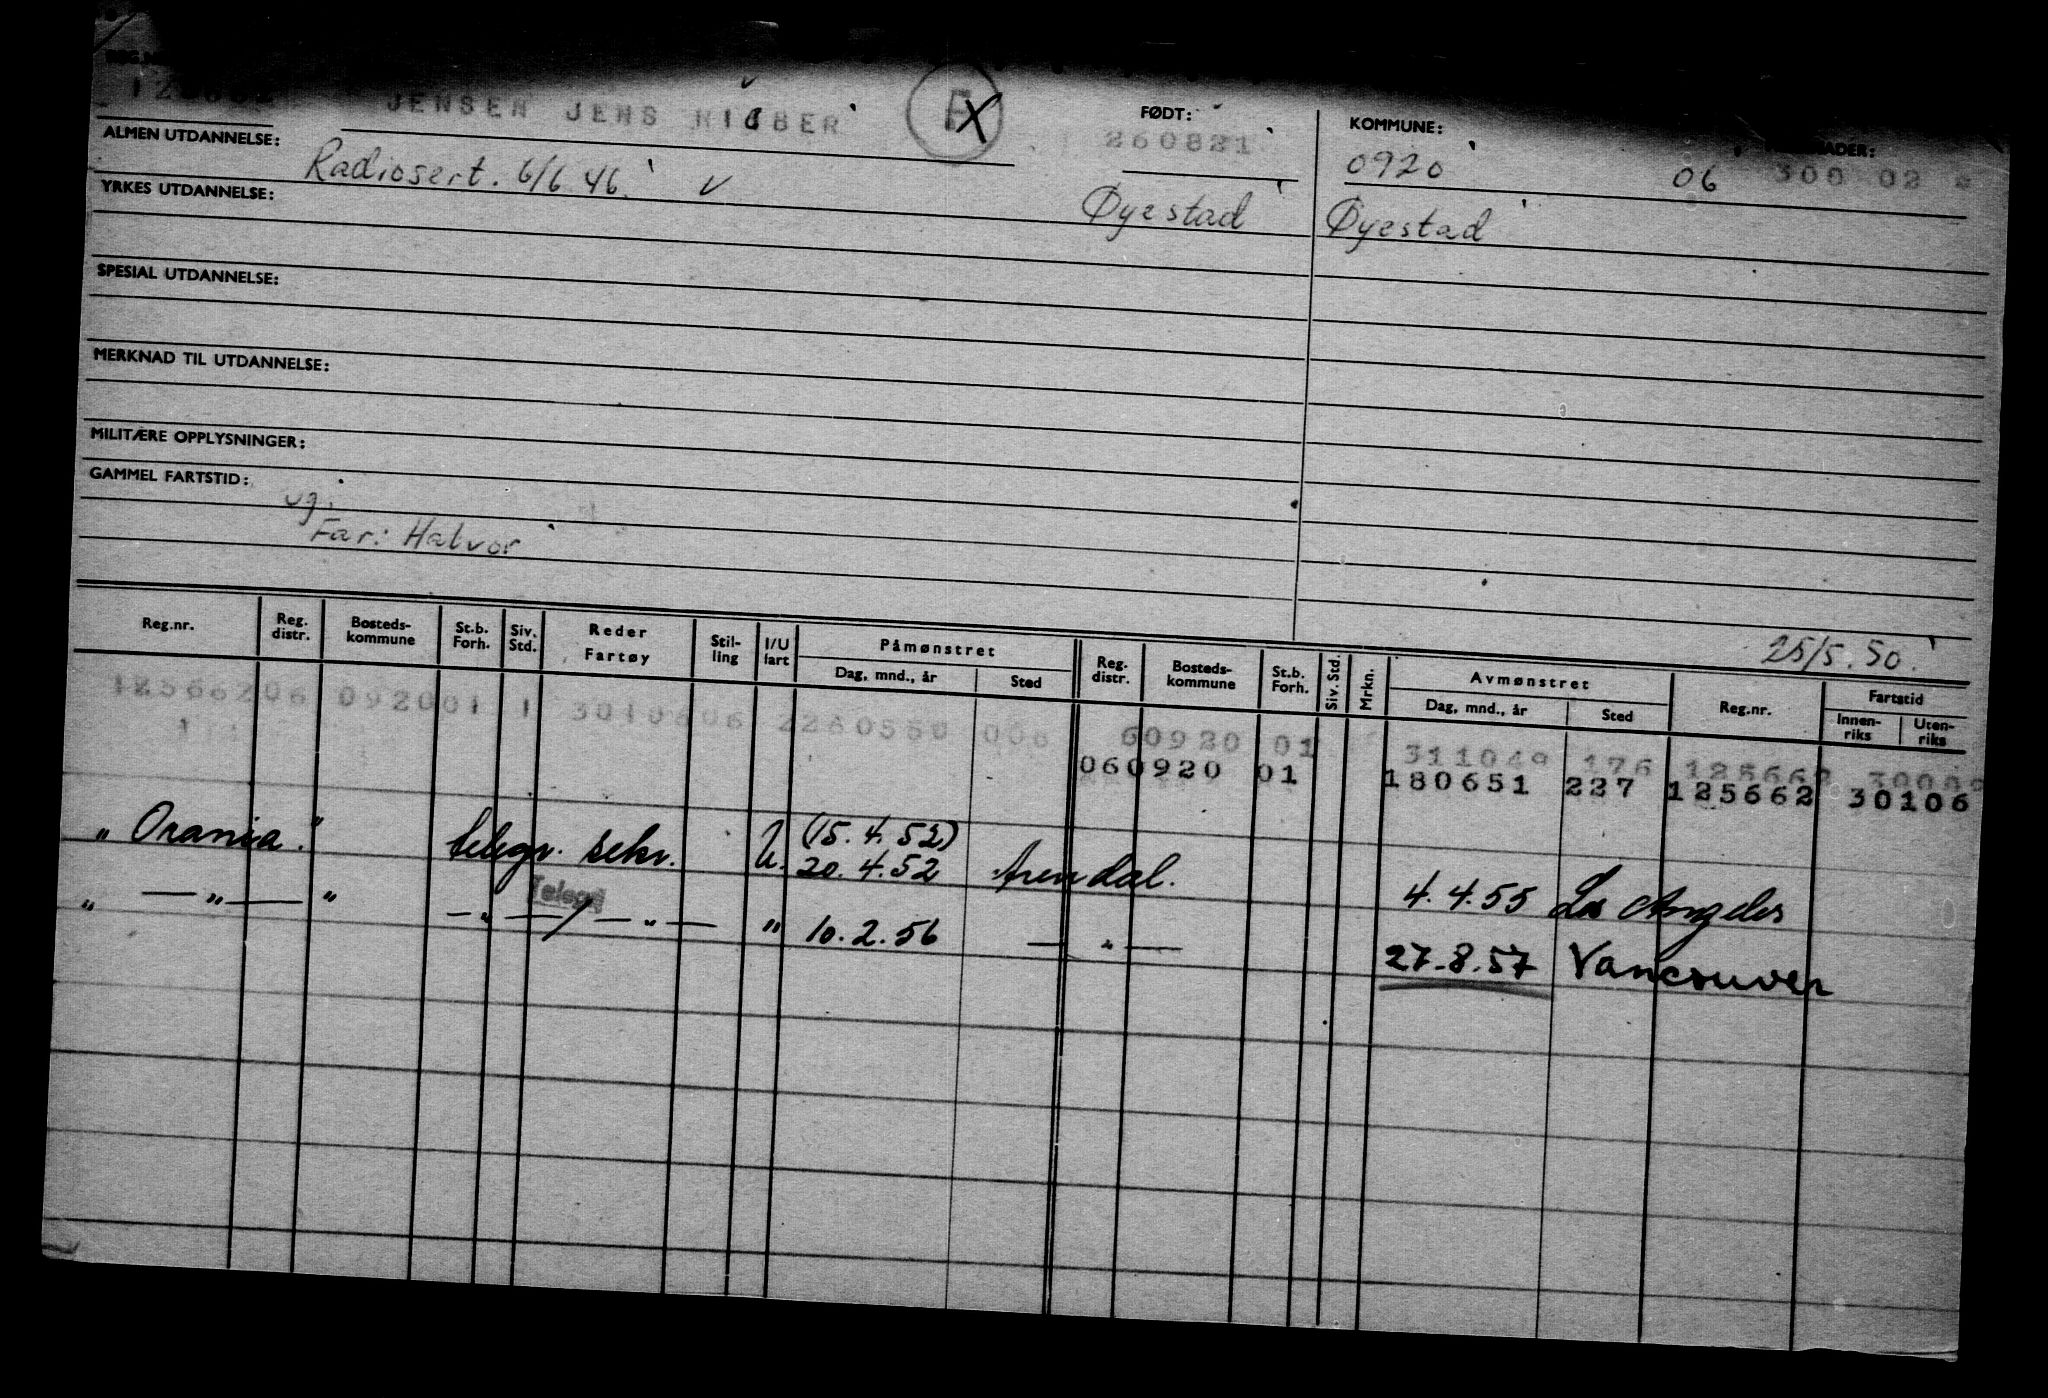 JENSEN JENS
FØDT:
KOMMUNE:
260821
0920 06 300 02
ALMEN UTDANNELSE:
Radiosert. 6/6 46. v
Øyestad
Øyestad
YRKES UTDANNELSE:
SPESIAL UTDANNELSE:
MERKNAD TIL UTDANNELSE:
MILITÆRE OPPLYSNINGER:
GAMMEL FARTSTID:
ug.
Far: Halvor
25/5.50.
Reg.nr. Reg. distr. Bosteds-kommune St.b. Forh. Siv. Std. Reder Fartøy Stil-ling I/U fart Påmønstret Dag, mnd., år Sted Reg. distr. Bosteds-kommune St.b. Forh. Siv. Std. Mrkn. Avmønstret Dag, mnd., år Sted Reg.nr. Fartstid Innen-riks Uten-riks
12566206 092001 1 3010606 2260550 006 60920 01 311049 176 125662
060920 01 180651 227 125662 30106
" Orania." telegr. sekr. U. (15.4.52) 20.4.52 Arendal. 4.4.55 Los Angeles
Telegr
" — " — " — " — / — " — " 10.2.56 — " — 27.8.57 Vancouver